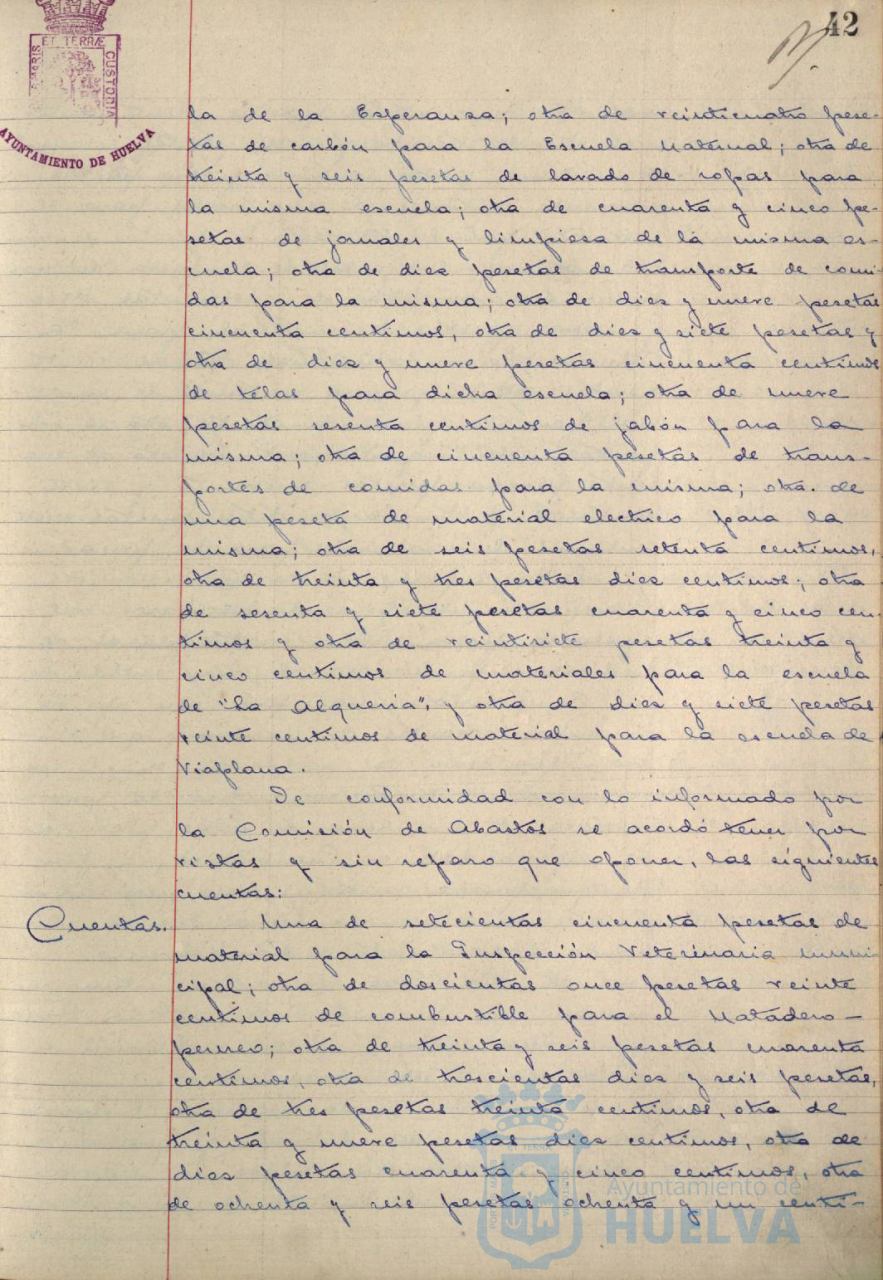 42
ET TERRÆ
MARIS
CUSTODIA
AYUNTAMIENTO DE HUELVA
la de la Esperanza; otra de veinticuatro pese-
tas de carbón para la Escuela Maternal; otra de
treinta y seis pesetas de lavado de ropas para
la misma escuela; otra de cuarenta y cinco pe-
setas de jornales y limpiesa de la misma es-
cuela; otra de diez pesetas de transporte de comi-
das para la misma; otra de diez y nueve pesetas
cincuenta centimos, otra de diez y siete pesetas y
otra de diez y nueve pesetas cincuenta centimos
de telas para dicha escuela; otra de nueve
pesetas sesenta centimos de jabón para la
misma; otra de cincuenta pesetas de trans-
portes de comidas para la misma; otra de
una peseta de material electrico para la
misma; otra de seis pesetas setenta centimos,
otra de treinta y tres pesetas diez centimos; otra
de sesenta y siete pesetas cuarenta y cinco cen-
timos y otra de veintisiete pesetas treinta y
cinco centimos de materiales para la escuela
de "La Alqueria", y otra de diez y siete pesetas
veinte centimos de material para la escuela de
Viaplana.
De conformidad con lo informado por
la Comisión de Abastos se acordó tener por
vistas y sin reparo que oponer, las siguientes
cuentas:
Cuentas. Una de setecientas cincuenta pesetas de
material para la Inspección Veterinaria muni-
cipal; otra de doscientas once pesetas veinte
centimos de combustible para el Matadero-
perneo; otra de treinta y seis pesetas cuarenta
centimos, otra de trescientas diez y seis pesetas,
otra de tres pesetas treinta centimos, otra de
treinta y nueve pesetas diez centimos, otra de
diez pesetas cuarenta y cinco centimos, otra
de ochenta y seis pesetas ochenta y un centi-
Ayuntamiento de
HUELVA